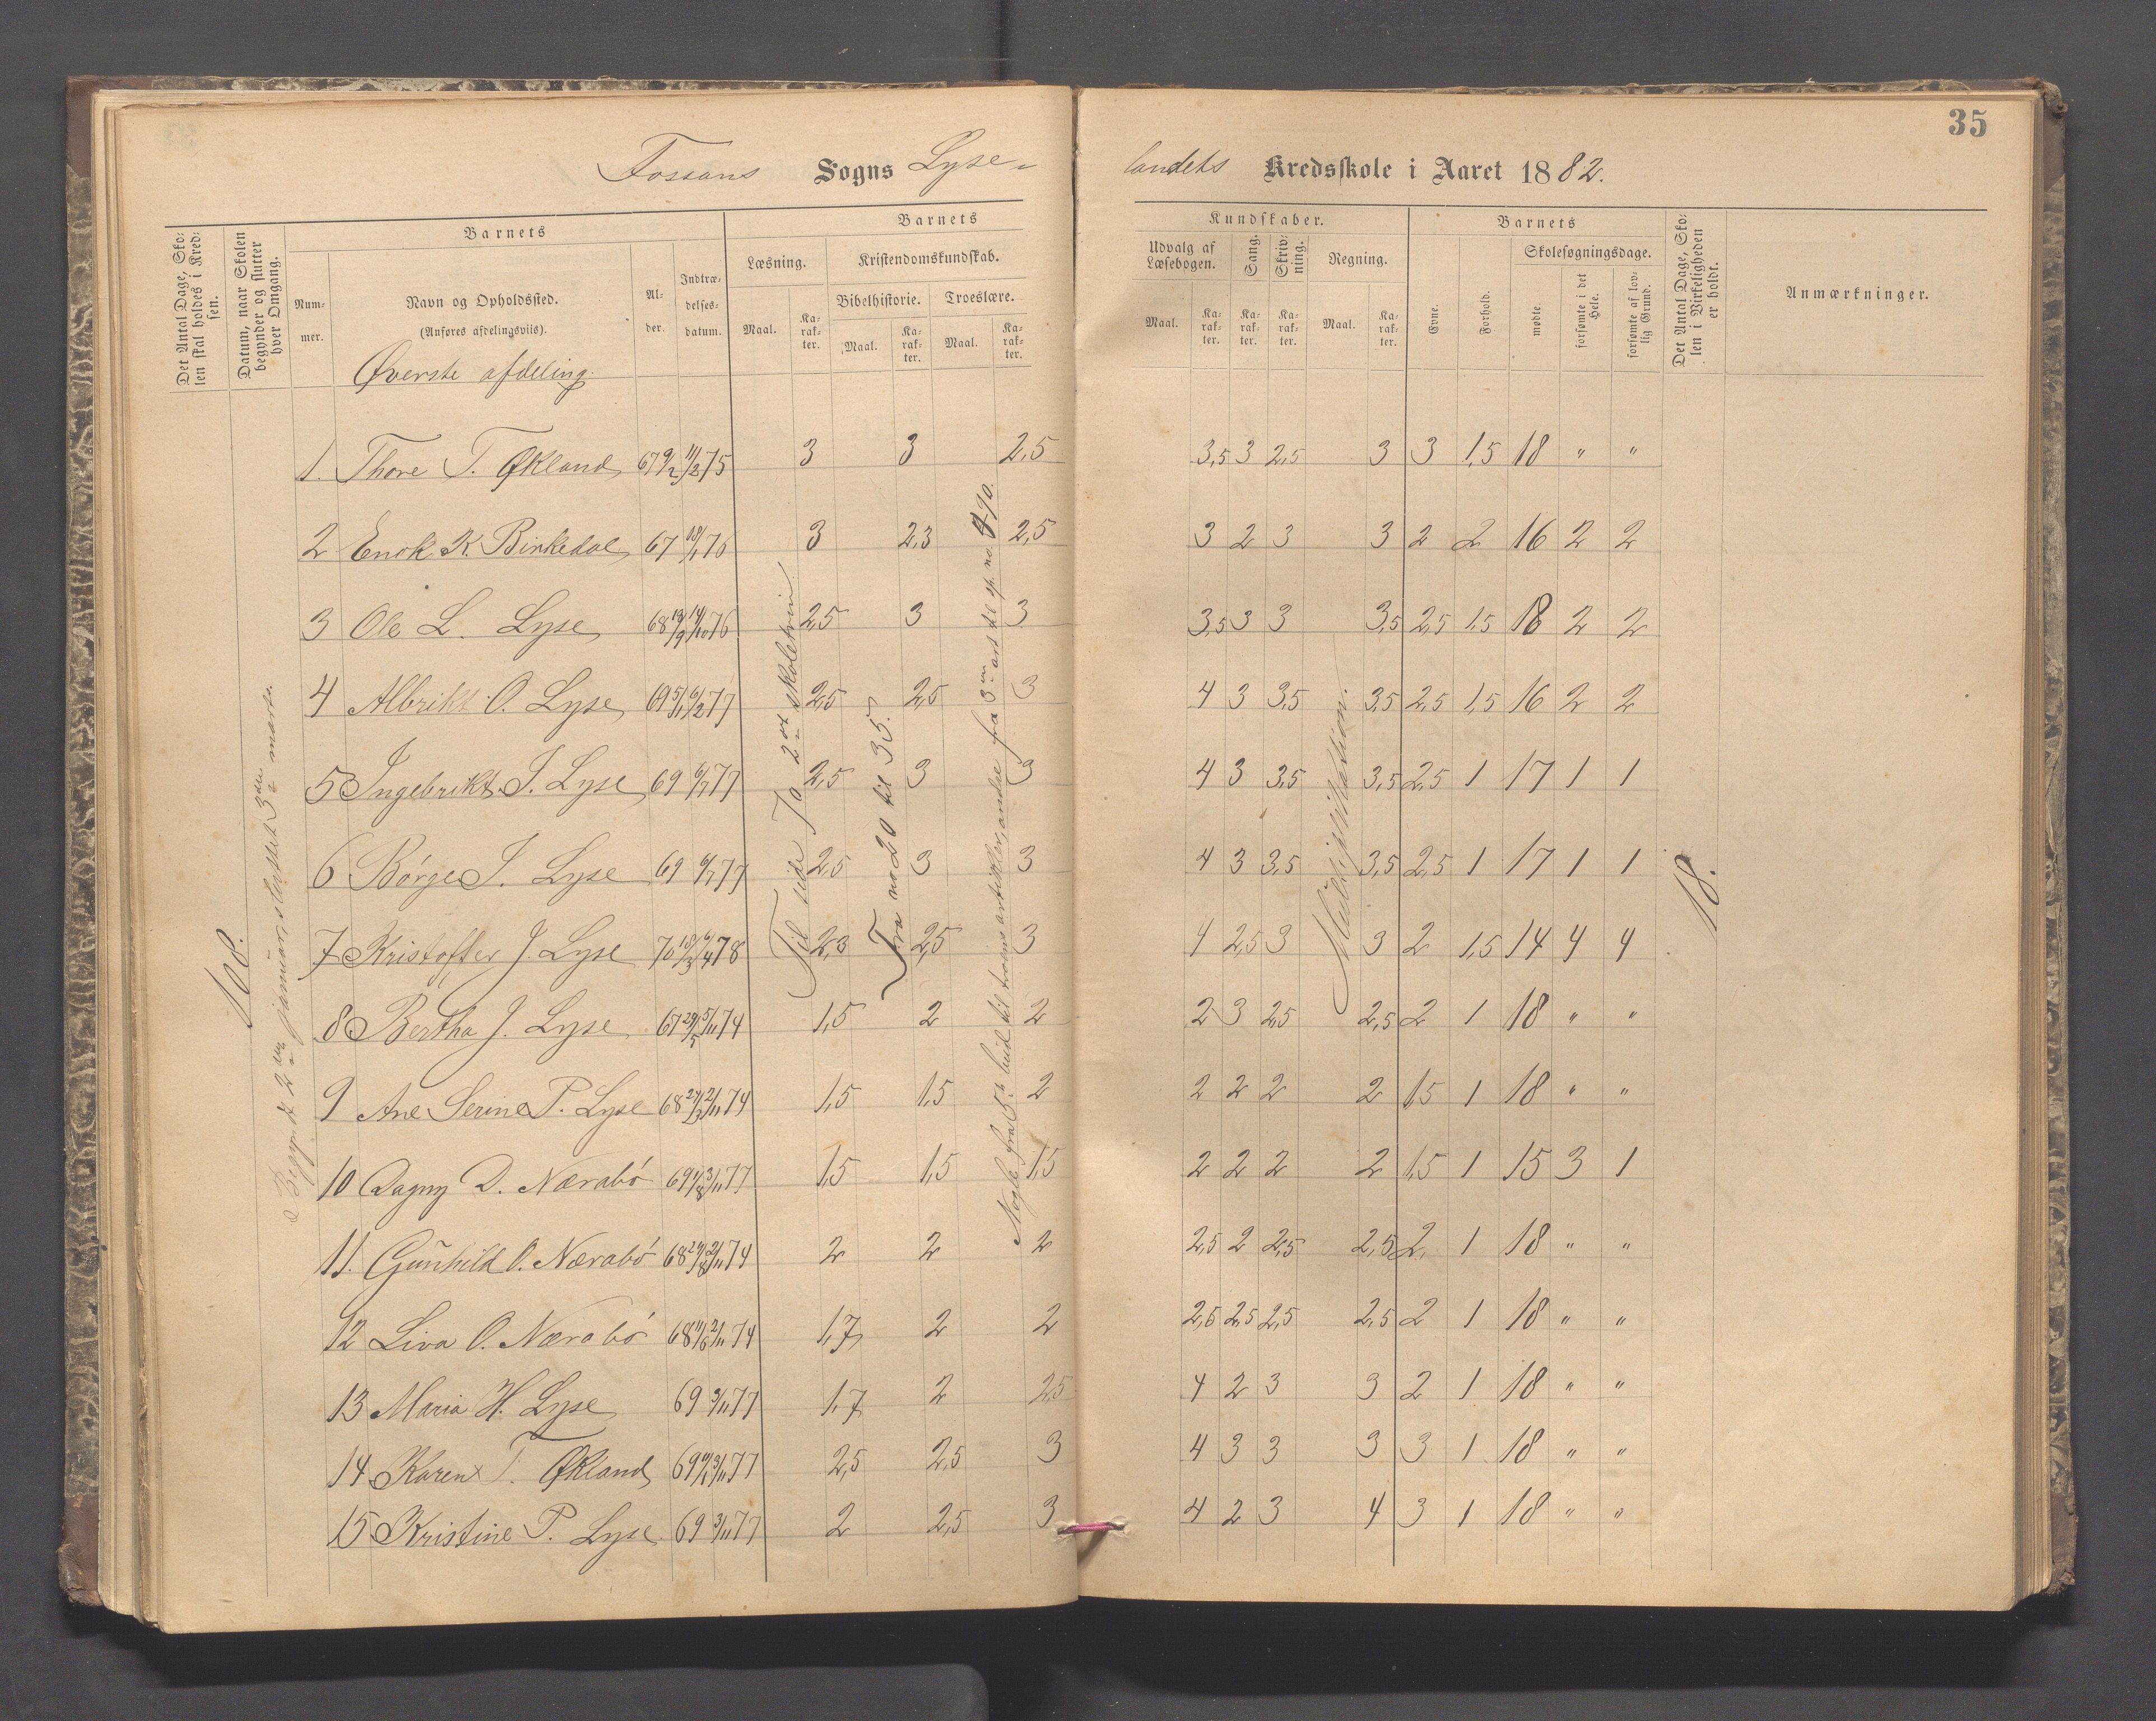 35
Fossans Sogns Lyse-
landets Kredsskole i Aaret 1882.
Det Antal Dage, Skolen skal holdes i Kredsen.
Datum, naar Skolen begynder og slutter hver Omgang.
Barnets
Nummer.
Navn og Opholdssted.
(Anføres afdelingsviis).
Alder.
Indtrædelsesdatum.
Barnets
Læsning.
Kristendomskundskab.
Bibelhistorie.
Troeslære.
Maal.
Karakter.
Maal.
Karakter.
Maal.
Karakter.
Kundskaber.
Udvalg af Læsebogen.
Sang.
Skrivning.
Regning.
Maal.
Karakter.
Karakter.
Karakter.
Maal.
Karakter.
Barnets
Evne.
Forhold.
Skolesøgningsdage.
mødte
forsømte i det Hele.
forsømte af lovlig Grund.
Det Antal Dage, Skolen i Virkeligheden er holdt.
Anmærkninger.
Øverste afdeling.
1. Thore T. Økland 67 9/2 11/2 75 3 3 2,5 3,5 3 2,5 3 3 1,5 18 " "
2 Enok K. Birkedal 67 18/1 76 3 2,3 2,5 3 2 3 3 2 2 16 2 2
3 Ole L. Lyse 68 19/9 14/10 76 2,5 3 3 3,5 3 3 3,5 2,5 1,5 18 2 2
4 Albrikt O. Lyse 69 5/1 6/2 77 2,5 2,5 3 4 3 3,5 3,5 2,5 1,5 16 2 2
5 Ingebrikt. I. Lyse 69 6/7 77 2,5 3 3 4 3 3,5 3,5 2,5 1 17 1 1
6 Børge I. Lyse 69 6/7 77 2,5 3 3 4 3 3,5 3,5 2,5 1 17 1 1
7 Kristoffer J. Lyse 70 10/3 6/4 78 2,3 2,5 3 4 2,5 3 3 2 1,5 14 4 4
8 Bertha J. Lyse 67 29/5 5/11 74 1,5 2 2 2 3 2,5 2,5 2 1 18 " "
9 Ane Serine P. Lyse 68 2/11 74 1,5 1,5 2 2 2 2 2 1,5 1 18 " "
10 Dagny D. Nærabø 69 3/11 77 1,5 1,5 1,5 2 2 2 2 1,5 1 15 3 1
11. Gunhild O. Nærabø 68 2/11 74 2 2 2 2,5 2 2,5 2,5 2 1 18 " "
12 Liva O. Nærabø 68 2/11 74 1,7 2 2 2,5 2,5 2,5 2,5 2 1 18 " "
13 Maria H. Lyse 69 3/11 77 1,7 2 2,5 4 2 3 3 2 1 18 " "
14 Karen T. Økland 69 3/11 77 2,5 2,5 3 4 3 3 3 3 1 18 " "
15 Kristine P. Lyse 69 3/11 77 2 2,5 3 4 2 3 4 3 1 18 " "
108.
Begyndt 2den januar, sluttet 3die marts.
Til side 70 2det skoletrin.
Fra no 20 til 35.
Nogle fra 5te bud til troens artikler, andre fra 3die art. til sp. no. 490.
Multiplikation.
18.